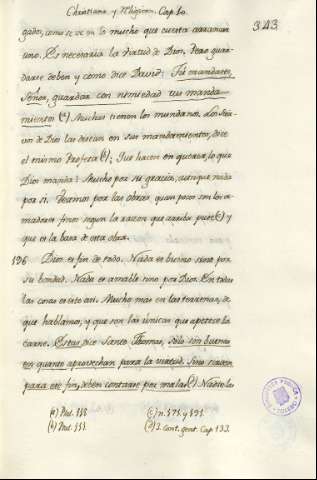 Christiana y Religiosa. Cap. 10.
343
gados, como se ve en lo mucho que cuesta arrancar
uno. Es necesaria la virtud de Dios. Pero guar-
darse deben y como dice David: Tú mandaste,
Señor, guardar con nimiedad tus manda-
mientos (a) Muchas tienen los mundanos. Los Sier-
vos de Dios las desean en sus mandamientos, dice
el mismo Profeta (b);
que hacen en quererlo, lo que
Dios manda? Mucho por su gracia, aunque nada
por sí. Veamos por las obras, quan pocos son los a-
madores finos segun la razon que arriba puse (c) y
que es la basa de esta obra.
136 Dios es fin de todo. Nada es bueno sino por
su bondad. Nada es amable sino por Dios. En todas
las cosas es esto así. Mucho mas en las terrenas, de
que hablamos, y que son las únicas que apetece la
carne. Estas, dice Santo Thomas, solo son buenas
en quanto aprovechan para la virtud. Sino sirven
para este fin, deben contarse por malas (d) Nadie las
(a) Psal. 118 (c) n. 171. y 191.
(b) Psal. 111. (d) 3. Cont. gent. Cap. 133.